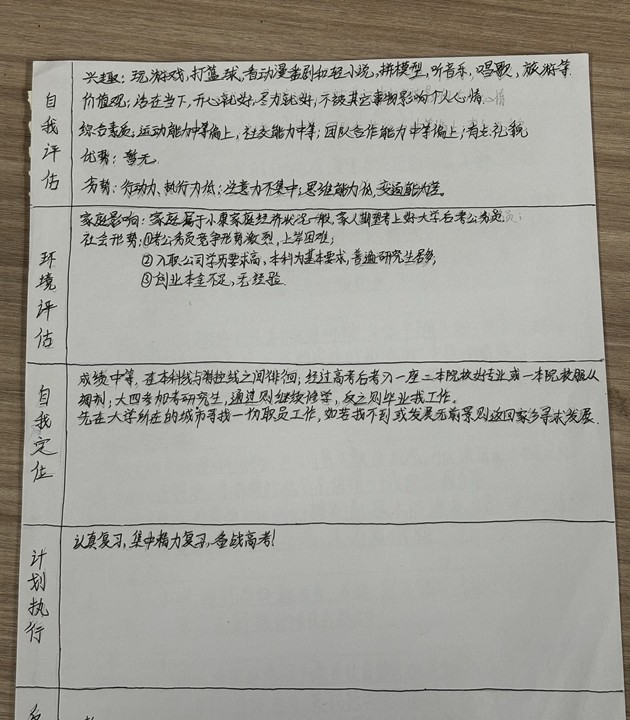 自我评估
兴趣：玩游戏，打篮球，看动漫番剧和轻小说，拼模型，听音乐，唱歌，旅游等
价值观：活在当下，开心就好，尽力就好，不被其它事物影响个人心情
综合素质：运动能力中等偏上，社交能力中等；团队合作能力中等偏上；有点礼貌
优势：暂无。
劣势：行动力、执行力低；注意力不集中；思维能力低，变通能力差。
环境评估
家庭影响：家庭属于小康家庭经济状况一般，家人期望考上好大学后考公务员；
社会形势：①考公务员竞争形势激烈，上岸困难；
②入职公司学历要求高，本科为基本要求，普遍研究生居多；
③创业本金不足，无经验
自我定位
成绩中等，在本科线与特控线之间徘徊；经过高考后考入一座二本院校好专业或一本院校服从
调剂；大四参加考研究生，通过则继续修学，反之则毕业找工作。
先在大学所在的城市寻找一切职员工作，如若找不到或发展无前景则返回家乡寻求发展.
计划执行
认真复习，集中精力复习，备战高考！